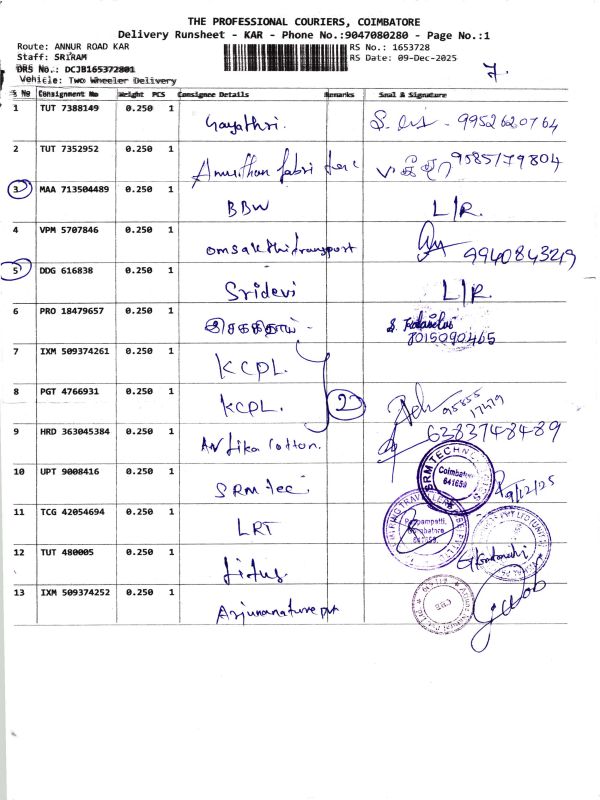 THE PROFESSIONAL COURIERS, COIMBATORE
Delivery Runsheet - KAR - Phone No.:9047080280 - Page No.:1
Route: ANNUR ROAD KAR RS No.: 1653728
Staff: SRIRAM RS Date: 09-Dec-2025
DRS No.: DCJB165372801 7.
Vehicle: Two Wheeler Delivery
S No Consignment No Weight PCS Consignee Details Remarks Seal & Signature
1 TUT 7388149 0.250 1 Gayathri. 9952620764
2 TUT 7352952 0.250 1 9585179804
3 MAA 713504489 0.250 1 BBW L/R.
4 VPM 5707846 0.250 1 omsakthi transport 9940843219
5 DDG 616838 0.250 1 Sridevi L/R.
6 PRO 18479657 0.250 1 8015090465
7 IXM 509374261 0.250 1 KCPL.
8 PGT 4766931 0.250 1 KCPL. 2 95855 17479
9 HRD 363045384 0.250 1 cotton. 6283748489
10 UPT 9008416 0.250 1 SRM tec Coimbatore 641659 9/12/25
11 TCG 42054694 0.250 1 LRT
12 TUT 480005 0.250 1 Titus.
13 IXM 509374252 0.250 1 Arjunanature pvt